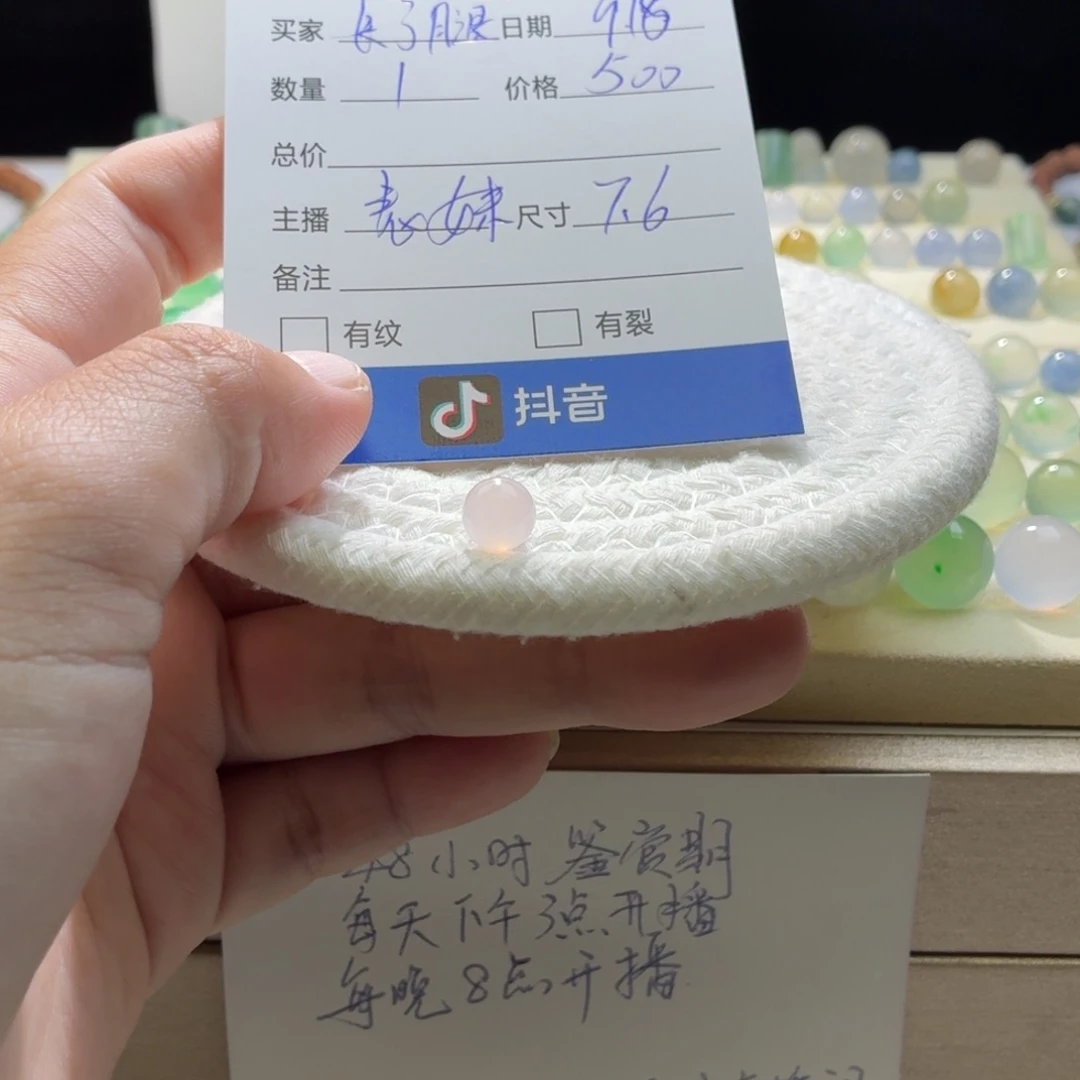 买家 长了月退 日期 9.18
数量 1 价格 500
总价
主播 表妹 尺寸 7.6
备注
有纹 有裂
抖音
48小时鉴赏期
每天下午3点开播
每晚8点开播